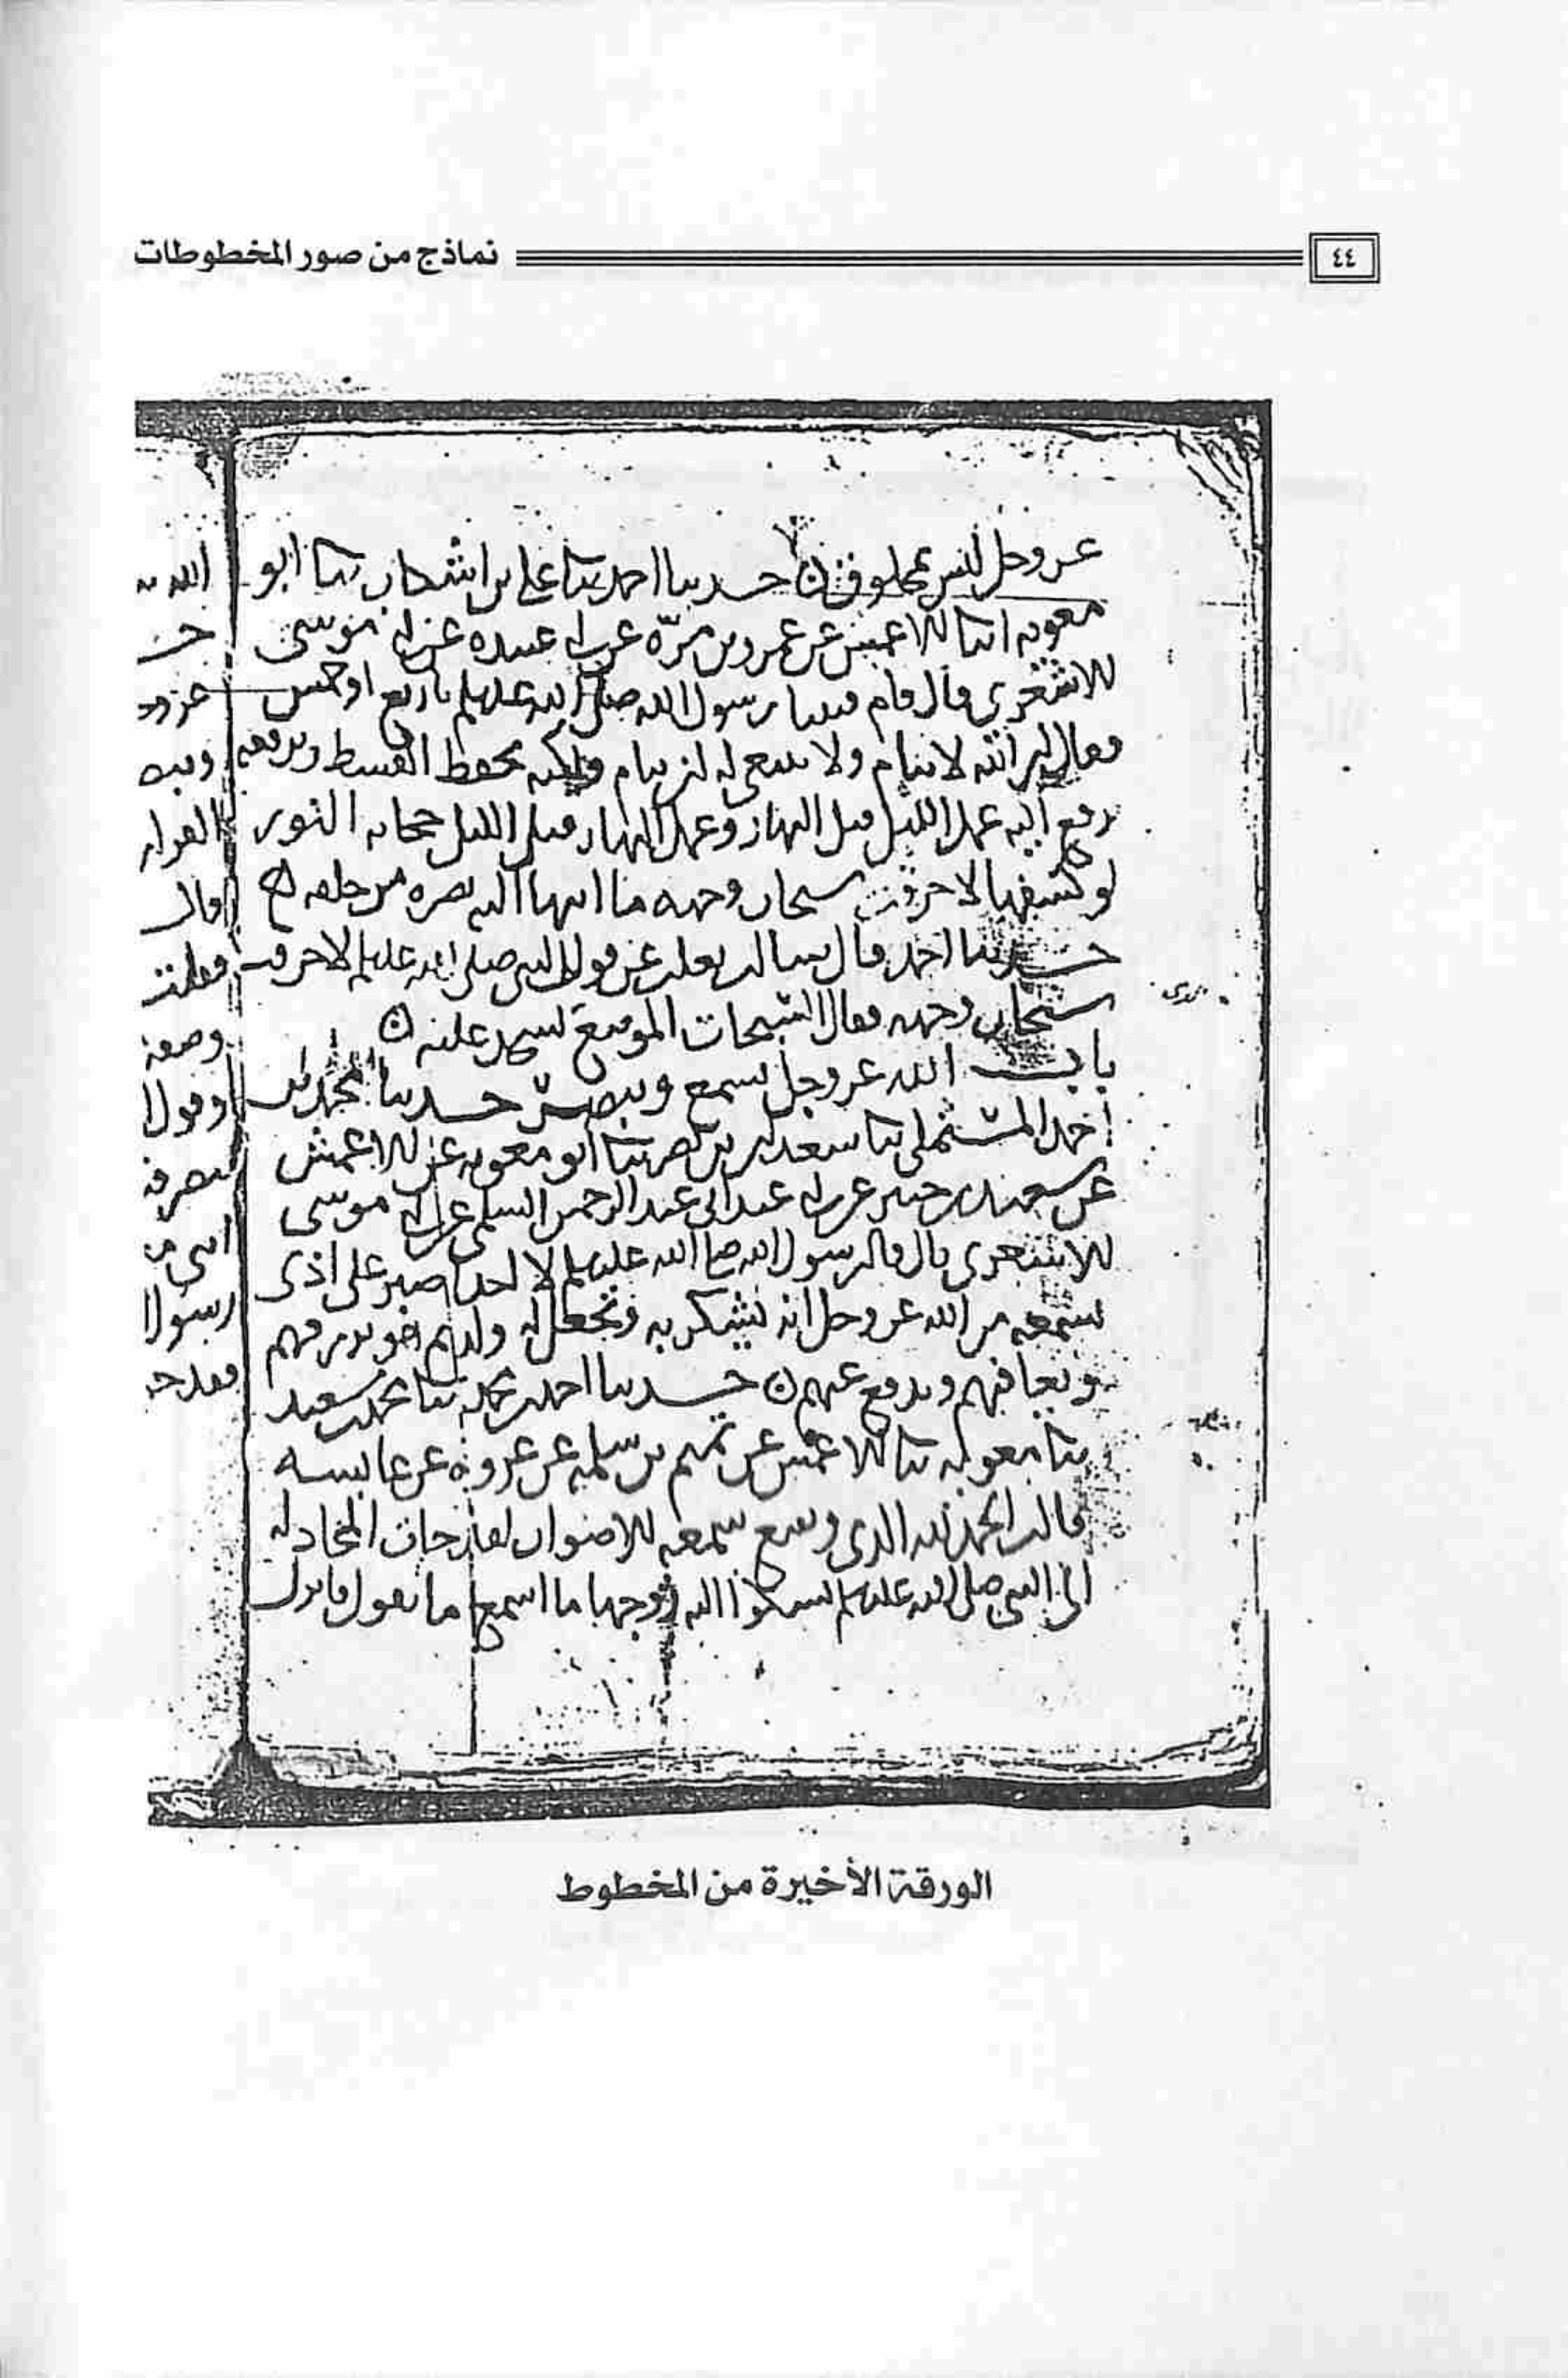 ٤٤
نماذج من صور المخطوطات
عز وجل ليس بمخلوق ن حدثنا احمد ثنا علي بن اشكاب ثنا ابو
معويه ثنا الاعمش عن عمرو بن مرّه عن ابي عبيده عن ابي موسى
الاشعري قال قام فينا رسول الله صلى الله عليه وسلم باربع او خمس
فقال ان الله لا ينام ولا ينبغي له ان ينام ولكنه يحفظ القسط ويرفعه
يرفع اليه عمل الليل قبل النهار وعمل النهار قبل الليل حجابه النور
لو كشفها لاحرقت سبحات وجهه ما انتها اليه بصره من خلقه
حدثنا احمد قال سالت ثعلب عن قول النبي صلى الله عليه وسلم لاحرقت
سبحات وجهه فقال السبحات الموضع يسجد عليه ن
باب الله عز وجل يسمع ويبصر حدثنا محمد بن
احمد المستملي ثنا سعدان بن نصر ثنا ابو معويه عن الاعمش
عن سعيد بن جبير عن ابي عبد الرحمن السلمي عن ابي موسى
الاشعري قال قال رسول الله صلى الله عليه وسلم لا احد اصبر على اذى
يسمعه من الله عز وجل انه يشرك به ويجعل له ولد ثم هو يرزقهم
ويعافيهم ويدفع عنهم ن حدثنا احمد بن محمد ثنا محمد بن سعيد
ثنا معويه ثنا الاعمش عن تميم بن سلمه عن عروه عن عايشه
قالت الحمد لله الذي وسع سمعه الاصوات لقد جات المجادله
الى النبي صلى الله عليه وسلم تشكوا اليه زوجها ما اسمع ما تقول فانزل
الورقة الأخيرة من المخطوط